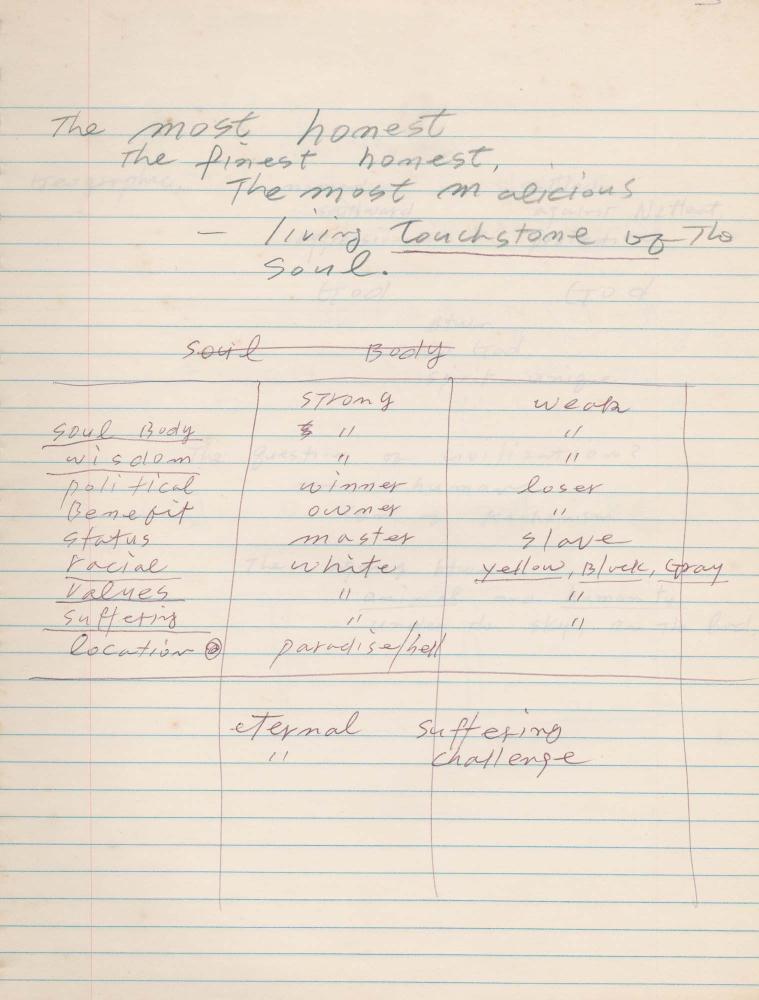 The most honest
The finest honest,
The most malicious
— living Touchstone of The
Soul.
Soul Body
strong weak
Soul Body " "
wisdom " "
political winner loser
Benefit owner "
status master slave
racial white yellow, Black, Gray
Values " "
suffering " "
location paradise/hell
eternal suffering
" challenge